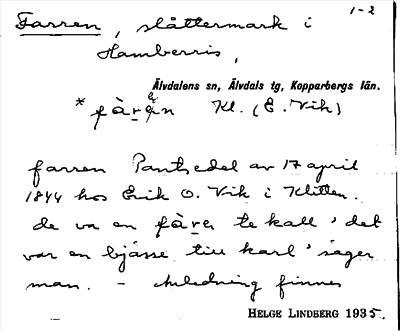 1-2
Farren, slåttermark i
Hamberris,
Älvdalens sn, Älvdals tg, Kopparbergs län.
* fàren Kl. (E. Vik)
farren Pantsedel av 17 april
1844 hos Erik O. Vik i Klitten.
de va en fàrer te kall, det
var en bjässe till karl, säger
man. - Anledning finnes
HELGE LINDBERG 1935.